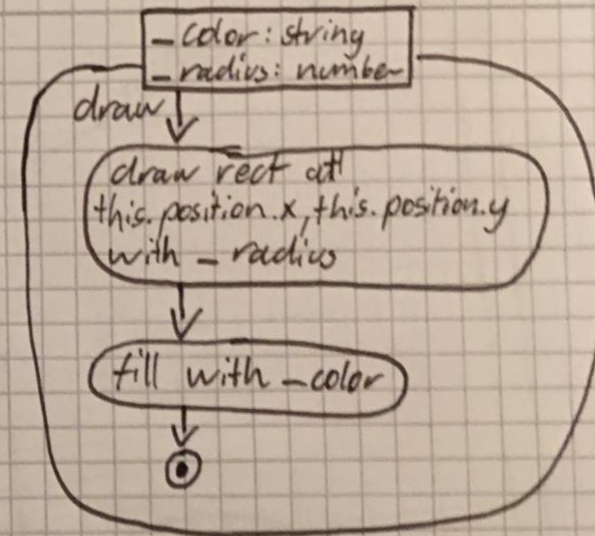 _color: string
_radius: number
draw
draw rect at
this.position.x, this.position.y
with _radius
fill with _color